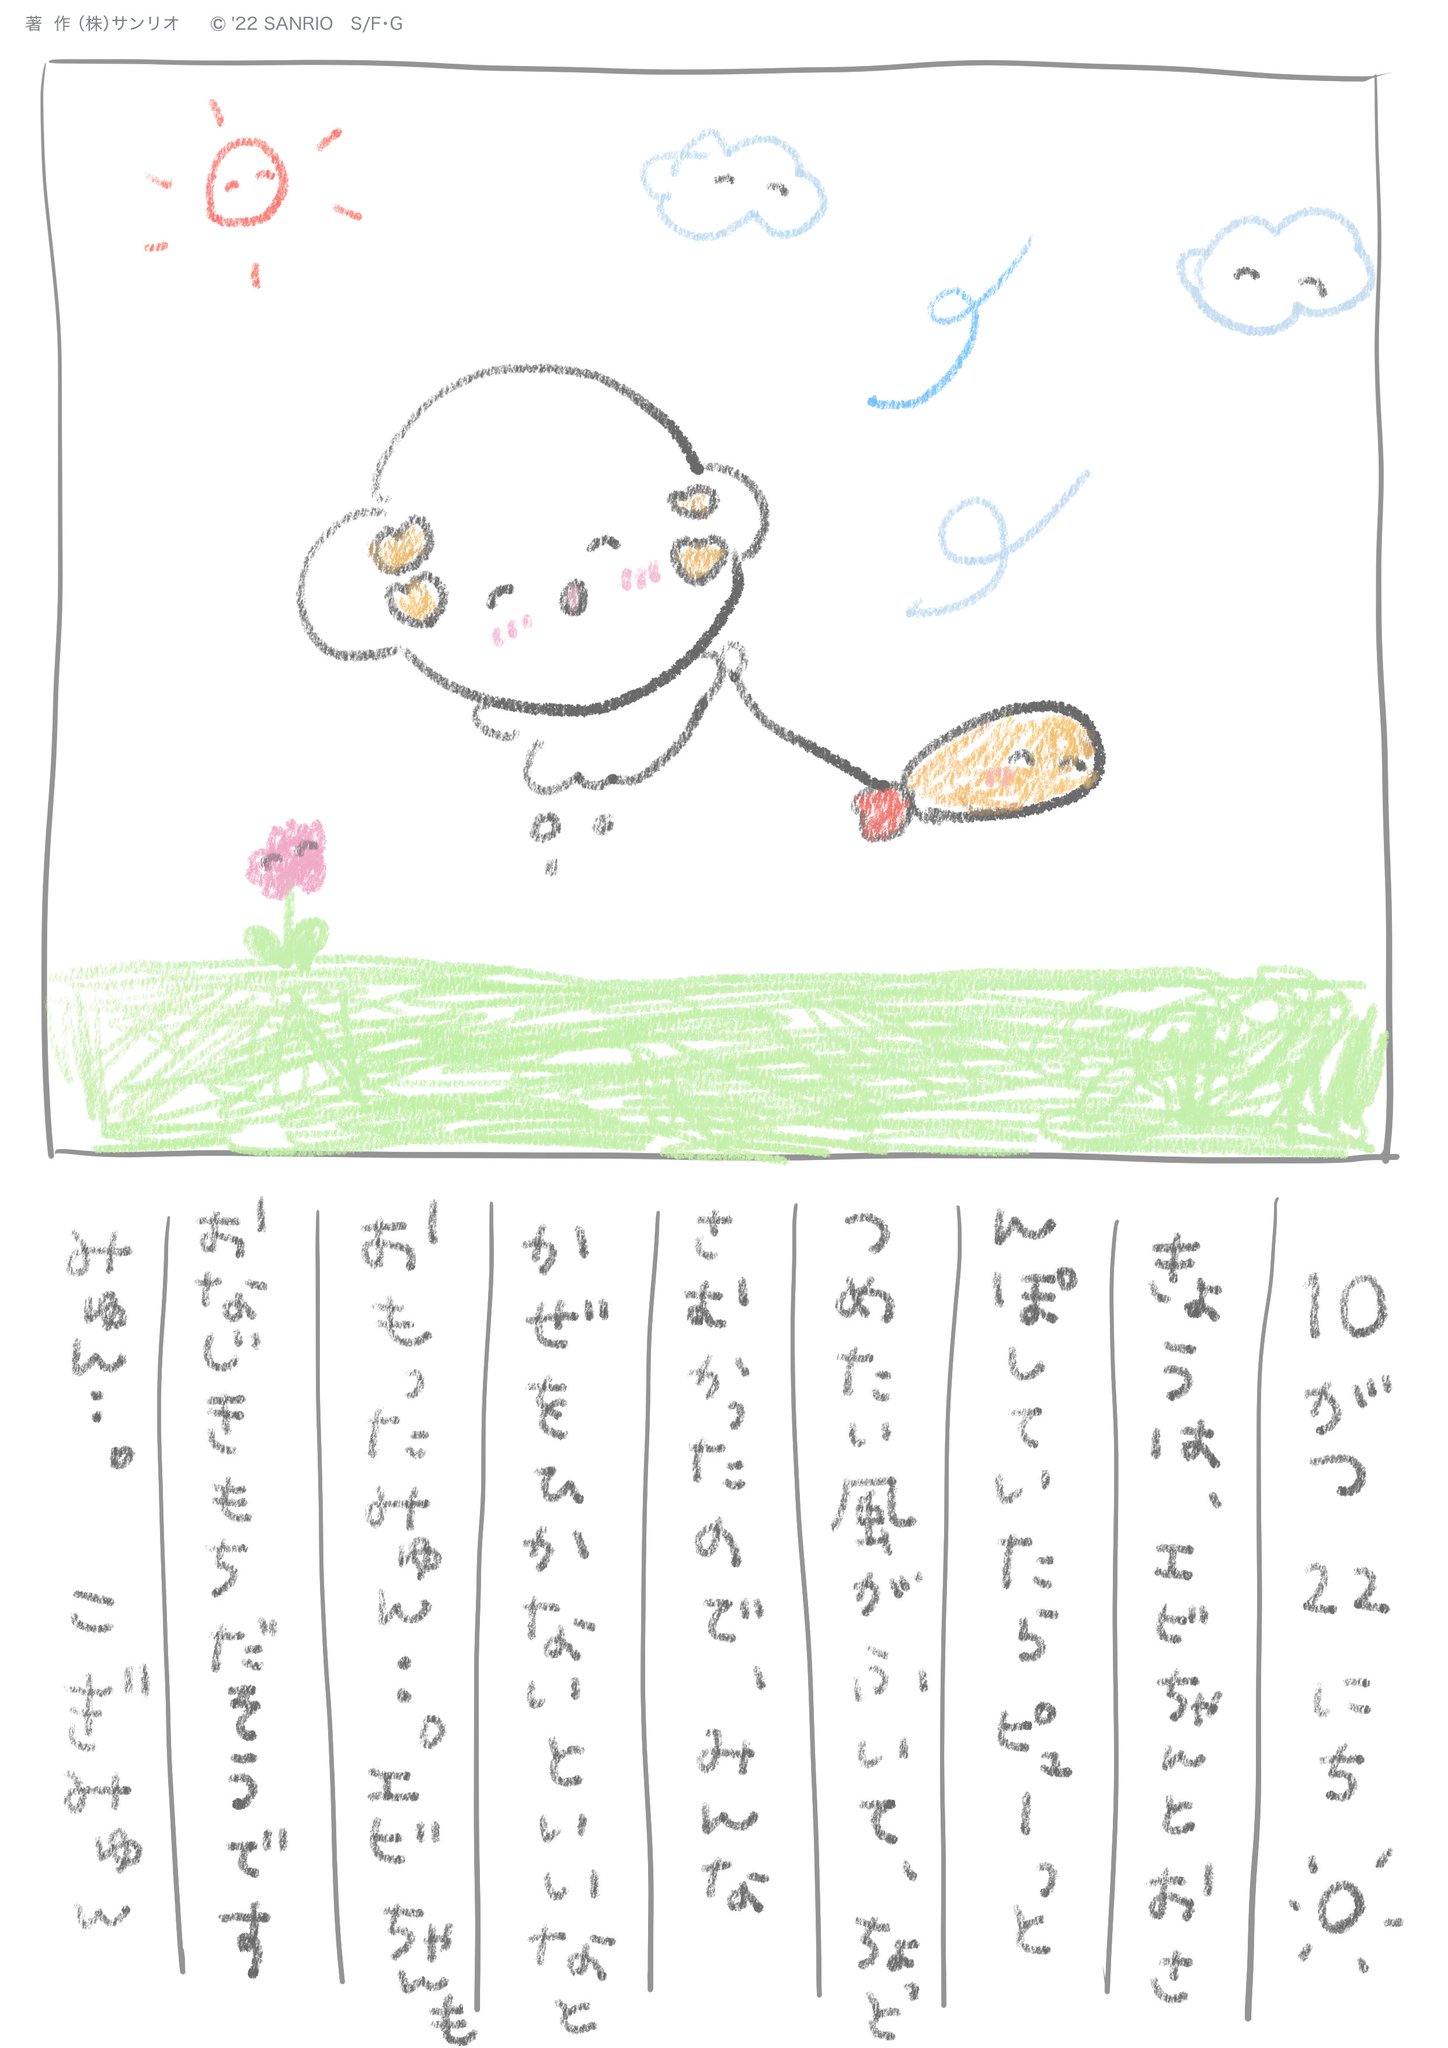 著 作 (株)サンリオ © '22 SANRIO S/F・G
10がつ 22 にち
きょうは、エビちゃんとおさ
んぽしていたらピューっと
つめたい風がふいて、ちょっど
さむかったので、みんな
かぜをひかないといいなと
おもったみゅん…。エビちゃんも
おなじきもちだそうです
みゅん…。 こぎみゅん